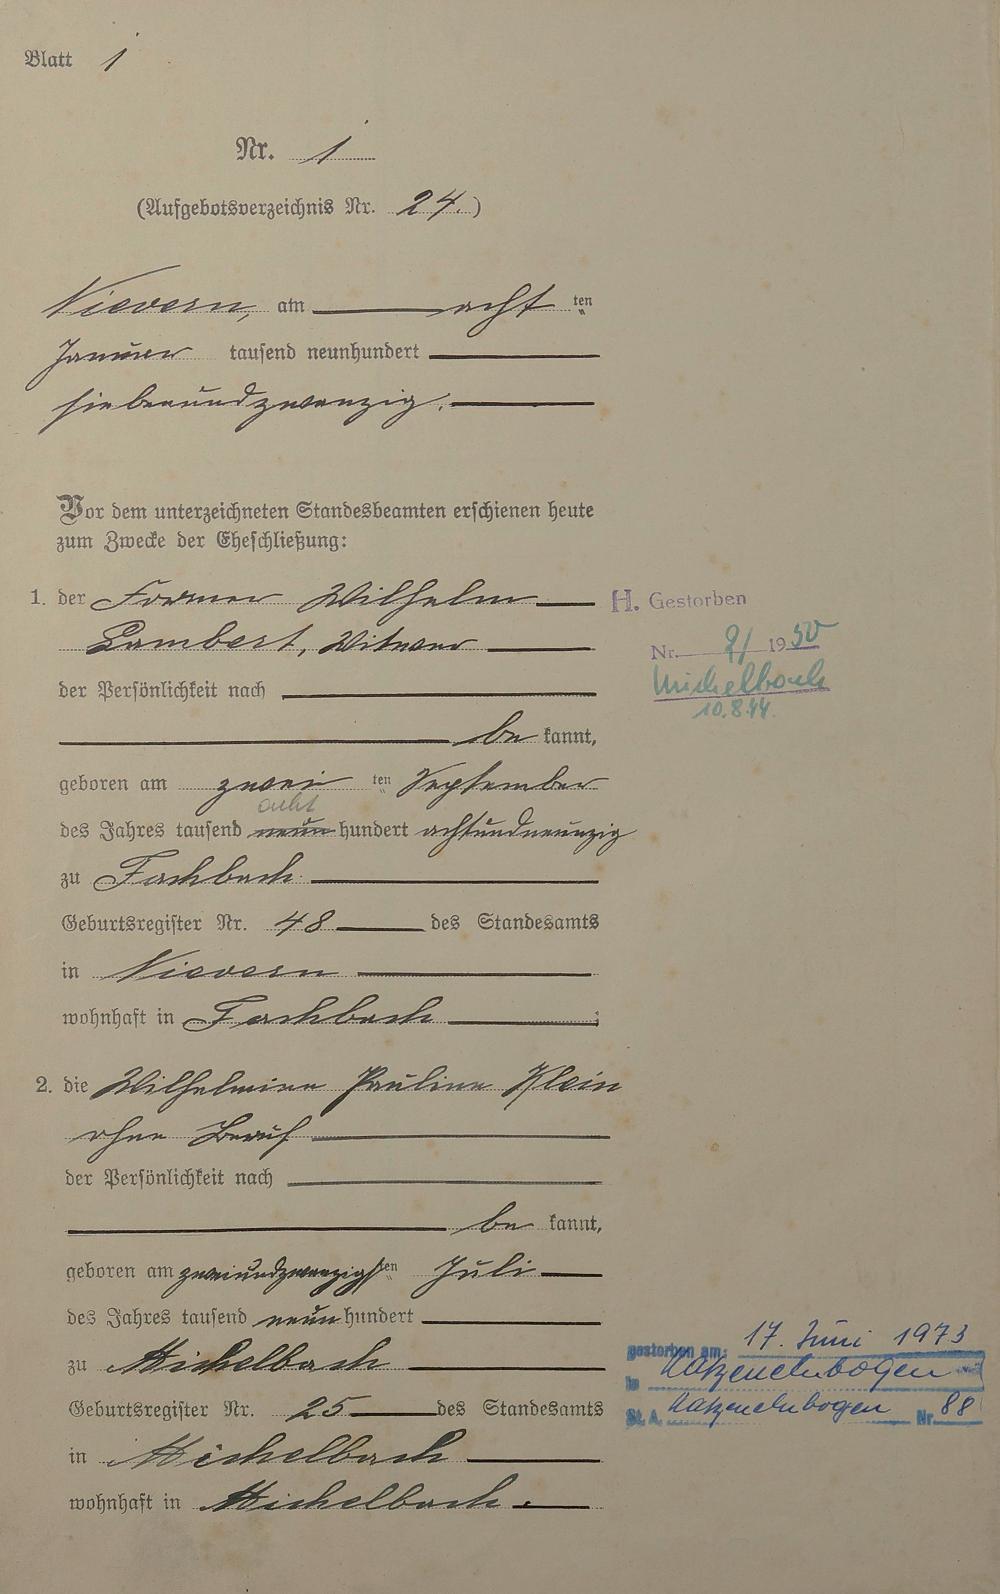 Blatt 1
Nr. 1
(Aufgebotsverzeichnis Nr. 24.)
Nievern, am acht ten
Januar tausend neunhundert
siebenundzwanzig.
Vor dem unterzeichneten Standesbeamten erschienen heute
zum Zwecke der Eheschließung:
1. der Former Wilhelm
Lambert, Witwer
der Persönlichkeit nach
be kannt,
geboren am zwei ten September
acht
des Jahres tausend neun hundert achtundneunzig
zu Fachbach
Geburtsregister Nr. 48 des Standesamts
in Nievern
wohnhaft in Fachbach ;
2. die Wilhelmine Pauline Klein
ohne Beruf
der Persönlichkeit nach
be kannt,
geboren am zweiundzwanzigsten Juli
des Jahres tausend neun hundert
zu Michelbach
Geburtsregister Nr. 25 des Standesamts
in Michelbach
wohnhaft in Michelbach.
H. Gestorben
Nr. 9/ 1950
Michelbach
10.8.44.
gestorben am: 17. Juni 1973
in Katzenelnbogen
St. A. Katzenelnbogen Nr. 88